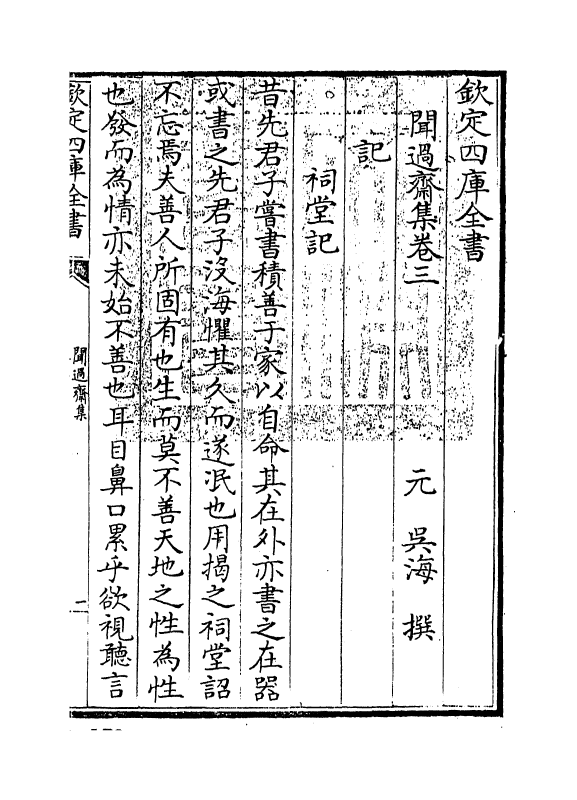 欽定四庫全書
聞過齋集卷三
元 吳海 撰
記
祠堂記
昔先君子嘗書積善于家以自命其在外亦書之在器
或書之先君子沒海懼其久而遂泯也用揭之祠堂詔
不忘焉夫善人所固有也生而莫不善天地之性為性
也發而為情亦未始不善也耳目鼻口累乎欲視聽言
欽定四庫全書
聞過齋集
一